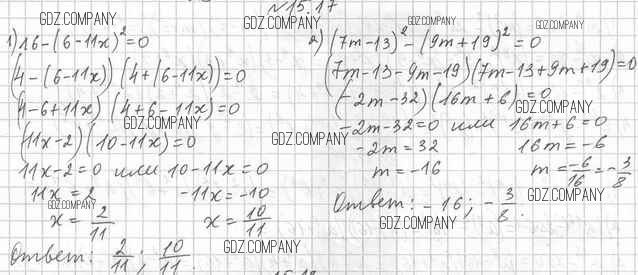 №15.17
1) 16-(6-11x)²=0
(4-(6-11x))(4+(6-11x))=0
(4-6+11x)(4+6-11x)=0
(11x-2)(10-11x)=0
11x-2=0 или 10-11x=0
11x=2 -11x=-10
x=2/11 x=10/11
Ответ: 2/11; 10/11.
2) (7m-13)²-(9m+19)²=0
(7m-13-9m-19)(7m-13+9m+19)=0
(-2m-32)(16m+6)=0
-2m-32=0 или 16m+6=0
-2m=32 16m=-6
m=-16 m=-6/16=-3/8
Ответ: -16; -3/8.
GDZ.COMPANY
GDZ.COMPANY
GDZ.COMPANY
GDZ.COMPANY
GDZ.COMPANY
GDZ.COMPANY
GDZ.COMPANY
GDZ.COMPANY
GDZ.COMPANY
GDZ.COMPANY
GDZ.COMPANY